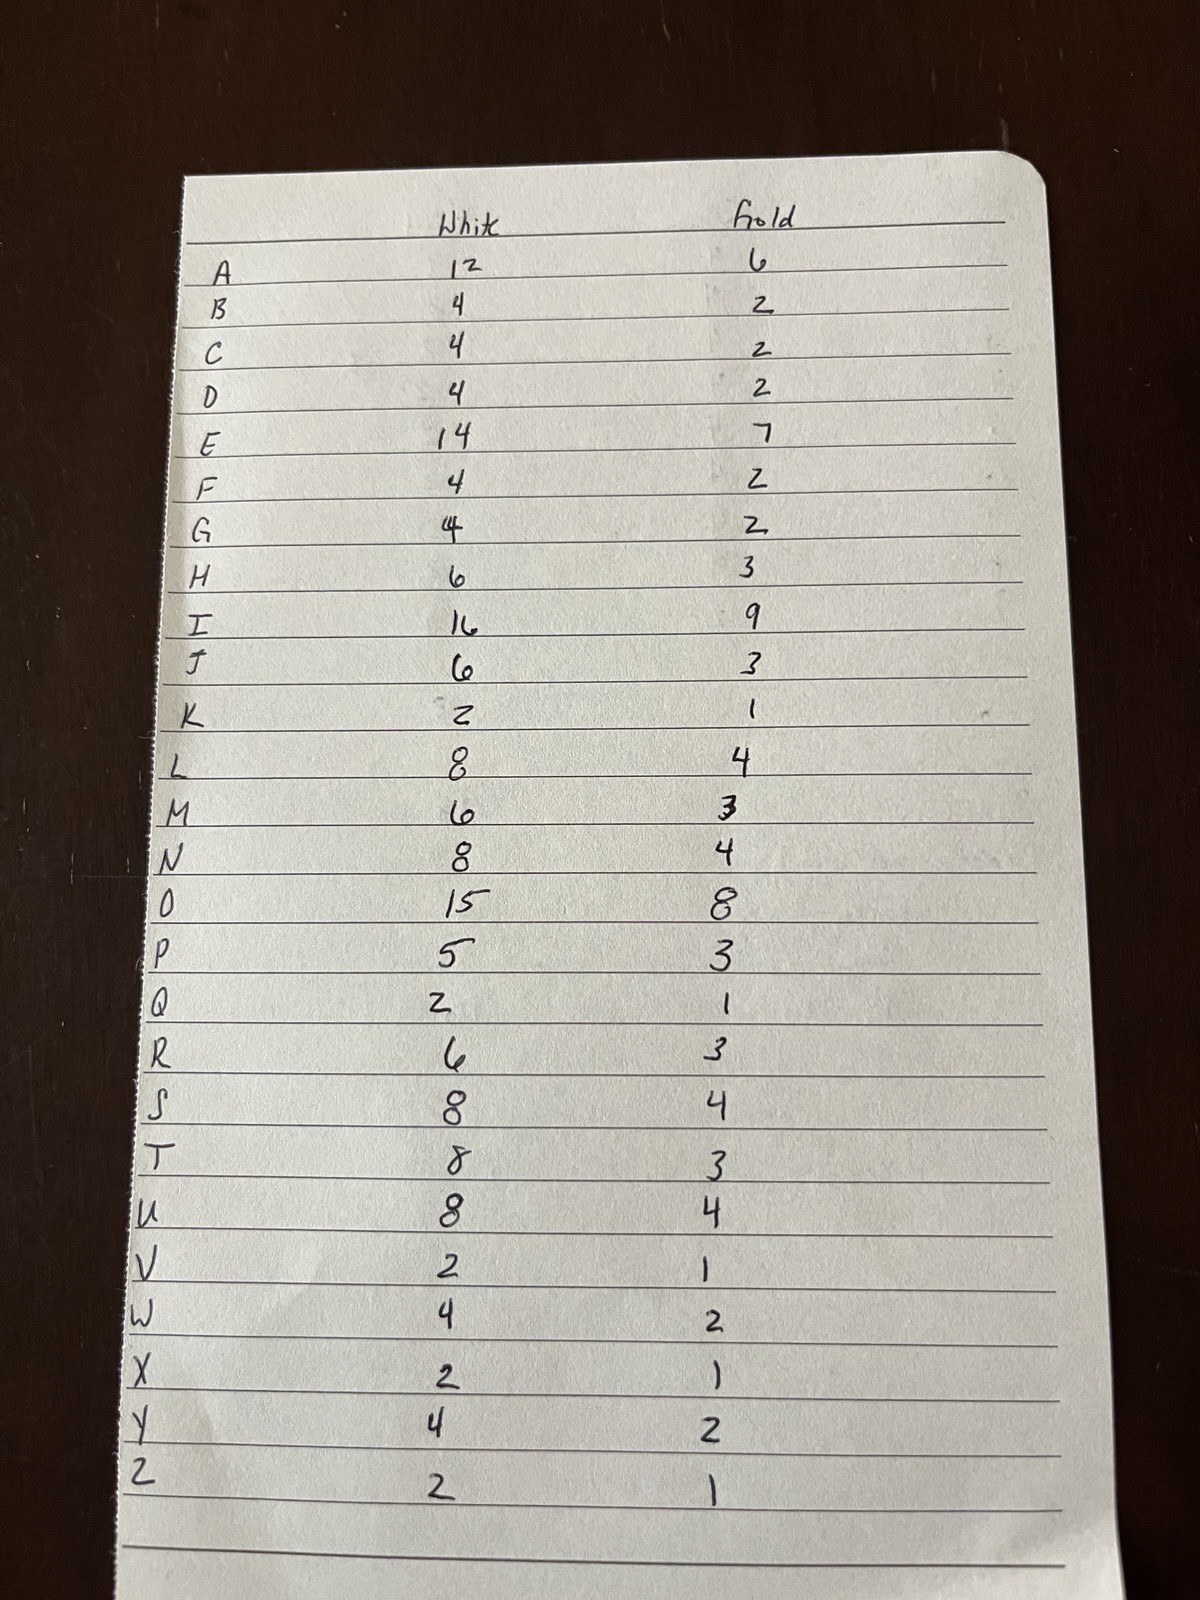 White Gold
A 12 6
B 4 2
C 4 2
D 4 2
E 14 7
F 4 2
G 4 2
H 6 3
I 16 9
J 6 3
K 2 1
L 8 4
M 6 3
N 8 4
O 15 8
P 5 3
Q 2 1
R 6 3
S 8 4
T 8 3
U 8 4
V 2 1
W 4 2
X 2 1
Y 4 2
Z 2 1